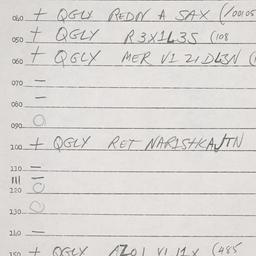 040 + QGLY REDN A SAX (/00105
050 + QGLY R3X1L3S (108
060 + QGLY MER VI 21 DL3N (
070 =
080 =
090 O
100 + QGLY RET NARISHKAJTN
110 =
111 O
120
130 O
140 =
150 + QGLY AZ01 VI 11X (485